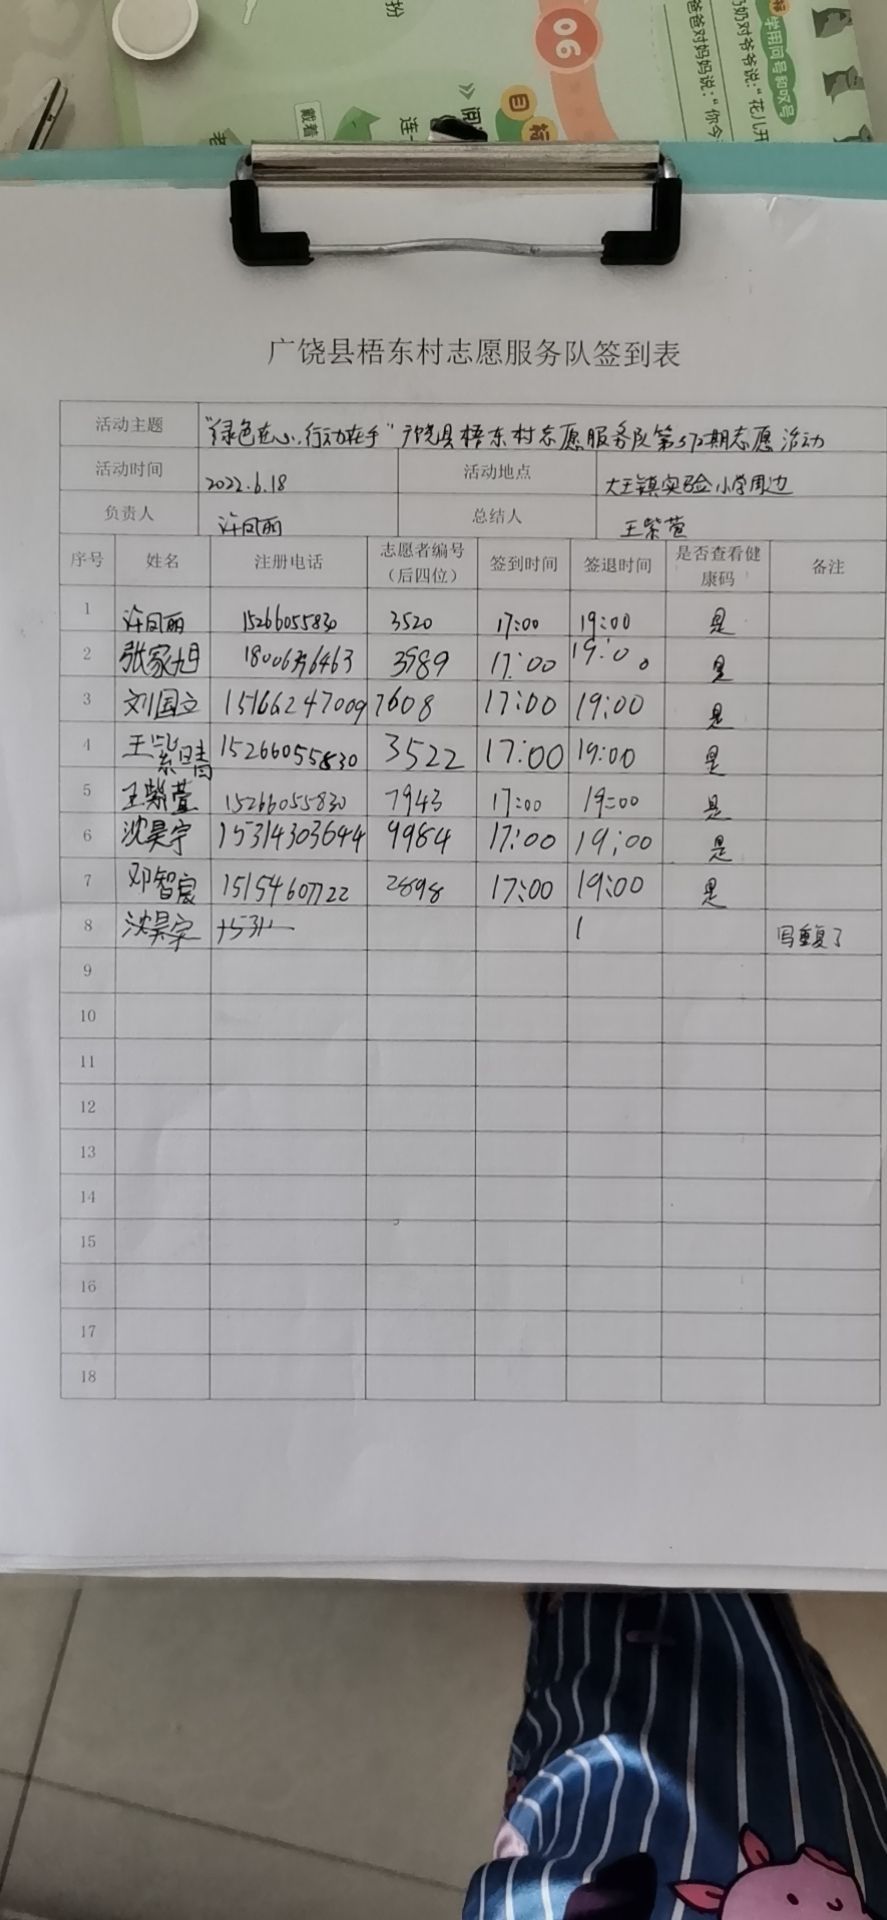 06
目标
学用问号和叹号
奶奶对爷爷说:“花儿开
爸爸对妈妈说:“你今
戴着
广饶县梧东村志愿服务队签到表
活动主题 “绿色在心,行动在手”广饶县梧东村志愿服务队第572期志愿活动
活动时间 2022.6.18 活动地点 大王镇实验小学周边
负责人 许凤丽 总结人 王紫萱
序号 姓名 注册电话 志愿者编号(后四位) 签到时间 签退时间 是否查看健康码 备注
1 许凤丽 15266055830 3520 17:00 19:00 是
2 张家旭 3989 17:00 19:00 是
3 刘国立 15166247009 7608 17:00 19:00 是
4 王紫晴 15266055830 3522 17:00 19:00 是
5 王紫萱 15266055830 7943 17:00 19:00 是
6 沈昊宇 15314303644 9984 17:00 19:00 是
7 邓智宸 15154607722 2898 17:00 19:00 是
8 沈昊宇 1531 1 写重复了
9
10
11
12
13
14
15
16
17
18